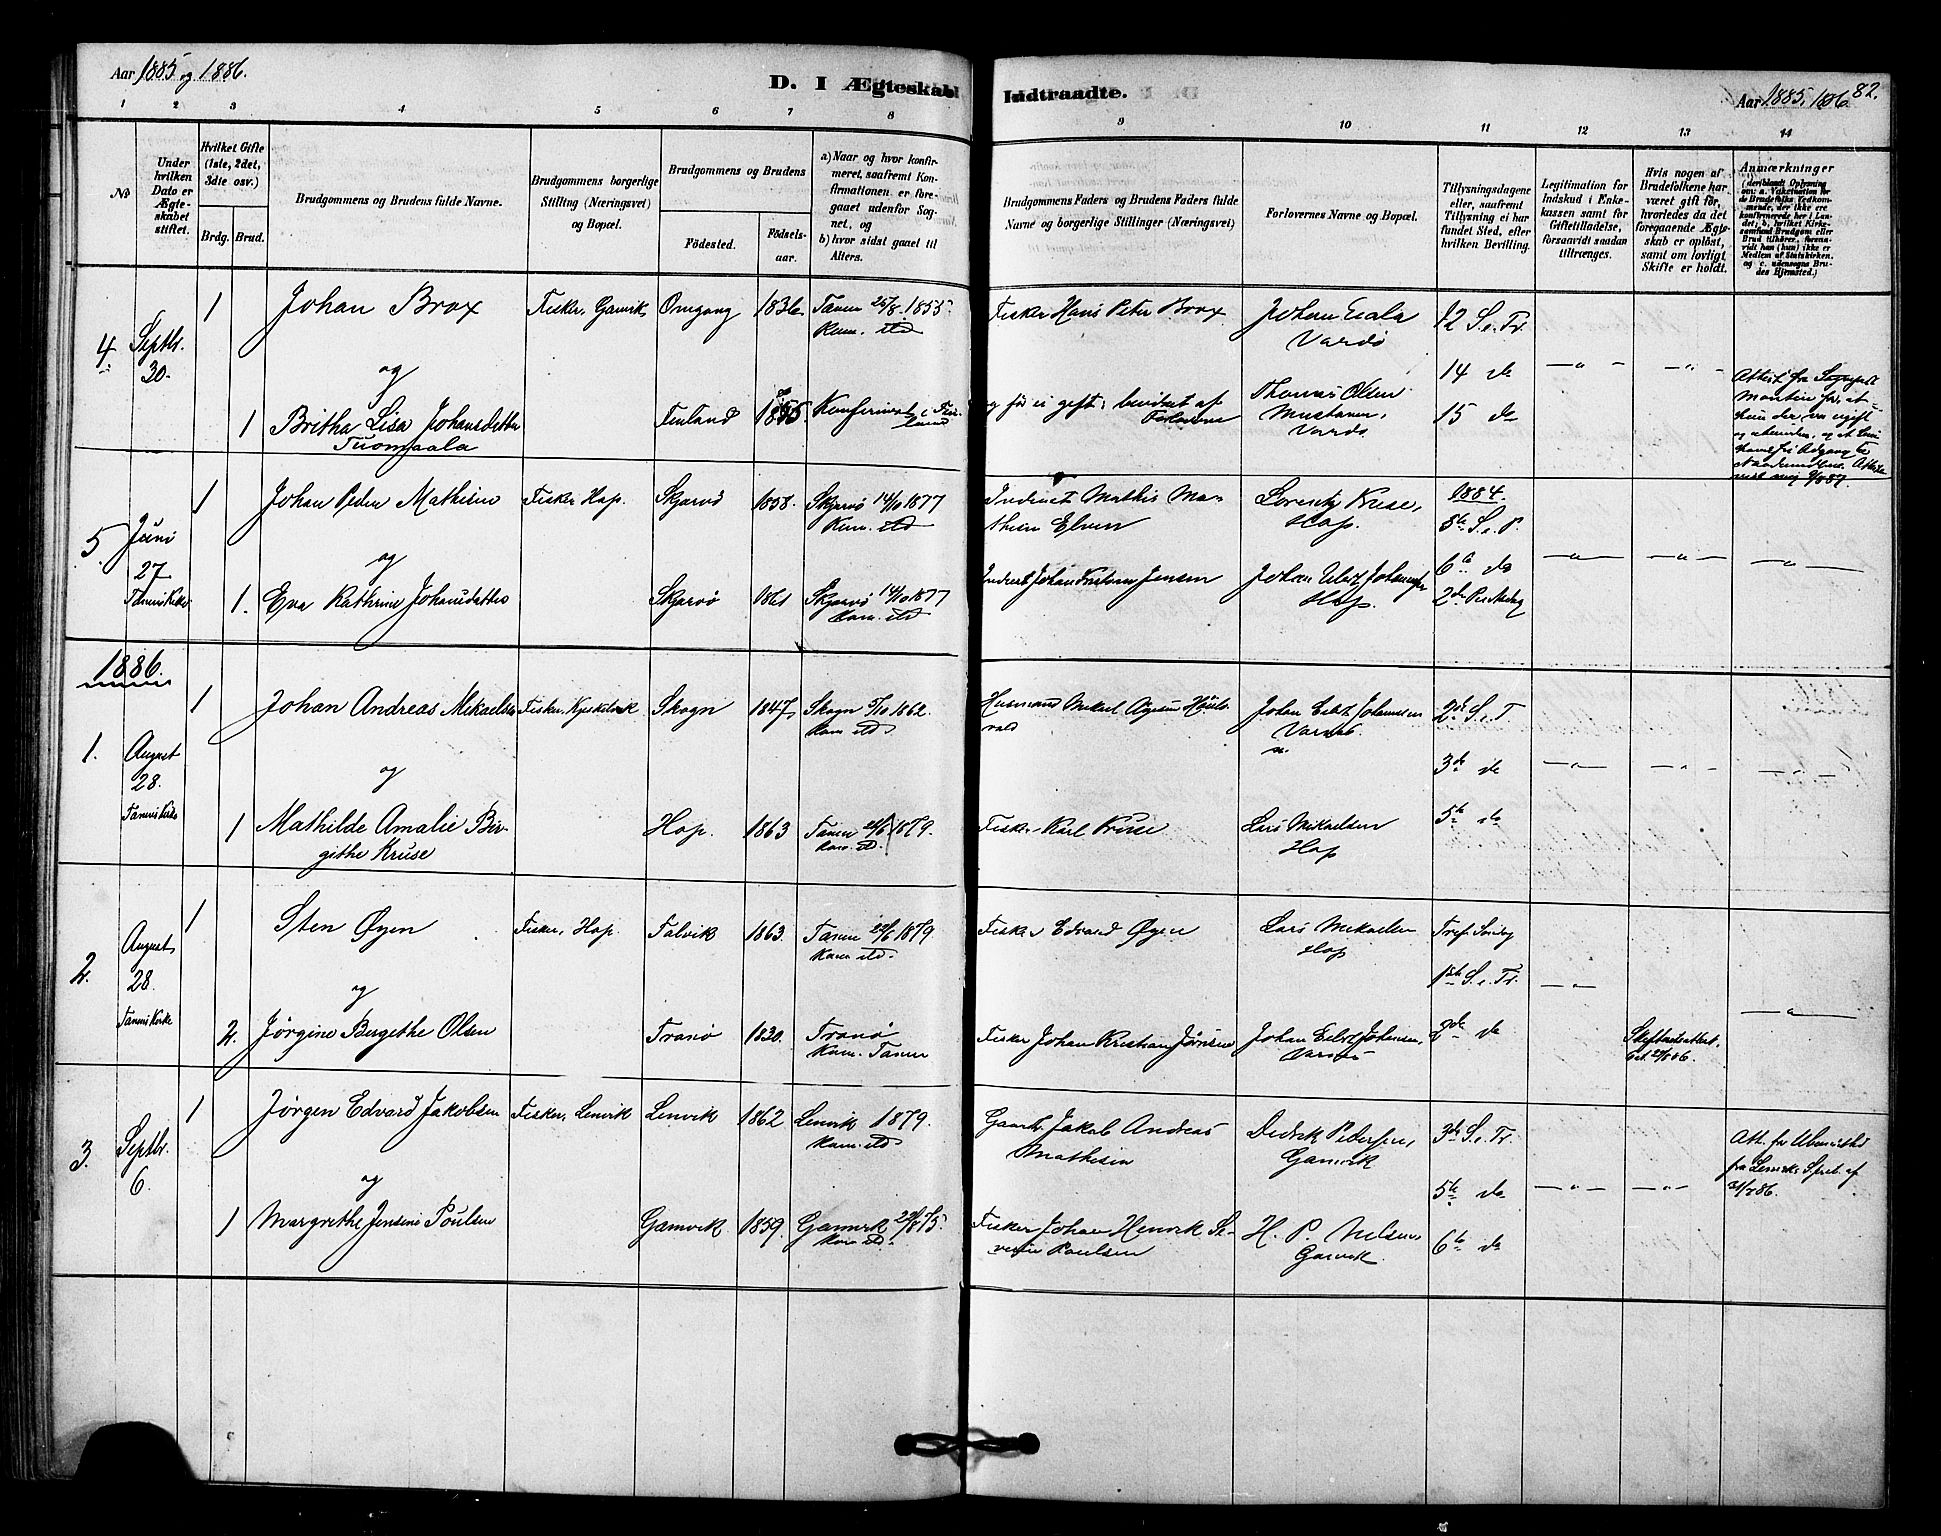 Aar 1885 og 1886.
D. I Ægteskab Indtraadte.
Aar 1885, 1886 82.
1 2 3 4 5 6 7 8 9 10 11 12 13 14
No
Under hvilken Dato er Ægteskabet stiftet.
Hvilket Gifte (1ste, 2det, 3die osv.)
Brdg. Brud.
Brudgommens og Brudens fulde Navne.
Brudgommens borgerlige Stilling (Næringsvei) og Bopæl.
Brudgommens og Brudens
Fødested.
Fødselsaar.
a) Naar og hvor konfirmeret, saafremt Konfirmationen er foregaaet udenfor Sognet, og
b) hvor sidst gaaet til Alters.
Brudgommens Faders og Brudens Faders fulde Navne og borgerlige Stillinger (Næringsvei)
Forlovernes Navne og Bopæl.
Tillysningsdagene eller, saafremt Tillysning ei har fundet Sted, efter hvilken Bevilling.
Legitimation for Indskud i Enkekassen samt for Giftetilladelse, forsaavidt saadan tiltrænges.
Hvis nogen af Brudefolkene har været gift før, hvorledes da det foregaaende Ægteskab er opløst, samt om lovligt Skifte er holdt.
Anmærkninger
(deriblandt Oplysning om: a. Vakcination for de Brudefolks Vedkommende, der ikke ere konfirmerede her i Landet; b. hvilket Kirkesamfund Brudgom eller Brud tilhører, forsaavidt han (hun) ikke er Medlem af Statskirken, og c. udensogns Brudes Hjemsted.)
4. Septbr. 30.
1 Johan Brox Fisker, Gamvik Omgang 1836 Tanen 26/8 1855. Kom. std Fisker Hans Peter Brox Johan Eiala Vardø 12 S. e. Tr.
og 14 do
1 Britha Lisa Johansdatter Tuomaala Finland 1855 Konfirmeret i Finland Thomas Olsen Mustanen, Vardø 15 do
Attest fra Sognepr.
5. Juni 27 Tanens Kirke
1 Johan Peder Mathisen Fisker Hop. Skjervø 1858. Skjervø 14/10 1877 Kom. std Inderst Mathis Mathisen Elven Lorentz Kruse, Hop. 1884. 5te S. e. P.
og 6te do
1. Eva Kathrine Johansdatter Skjervø 1861 Skjervø 14/10 1877 Kom. std Inderst Johan Jensen Johan Eilert Johannesen Hop. 2den
1886.
1. August 28. Tanens Kirke
1 Johan Andreas Mikaelsen Fisker, Skogn 1847. Skogn 5/10 1862. Kom std. Husmand Mikael Johan Eilert Johannesen 2den S. e. T.
og 3de do
1 Mathilde Amalie Birgithe Kruse Hop. 1863 Tanen 22/6 1879. Kom. std. Fisker Karl Kruse Lars Mikaelsen Hop 5te do
2. August 28. Tanens Kirke
1 Sten Øyen Fisker, Hop. Talvik 1863. Tanen 22/6 1879. Kom std. Fisker Edvard Øyen Lars Mikaelsen Hop Tref. Søndag
og 1ste S. e. Tr.
2. Jørgine Bergethe Olsen Tranø 1830. Tranø Kom. Tanen Fisker Johan Kristian Jørgensen Johan Eilert Johansen, 2den do Skifteattest
3. Septbr. 6.
1 Jørgen Edvard Jakobsen Fisker, Lenvik Lenvik 1862 Lenvik 1879. Kom. std Gaardbr. Jakob Andreas Mathisen Didrik Pedersen, Gamvik 3die S. e. Tr.
og 5te do
1 Margrethe Jensine Poulsen Gamvik 1859. Gamvik 29/8 75. Kom std. Fisker Johan Henrik Severin Paulsen H. P. Nilsen, Gamvik 6te do